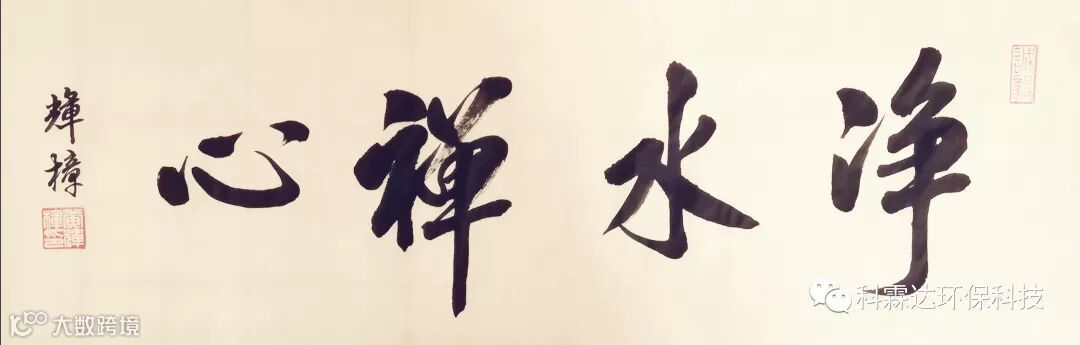 净水禅心
輝樟
科霖达环保科技
大数跨境